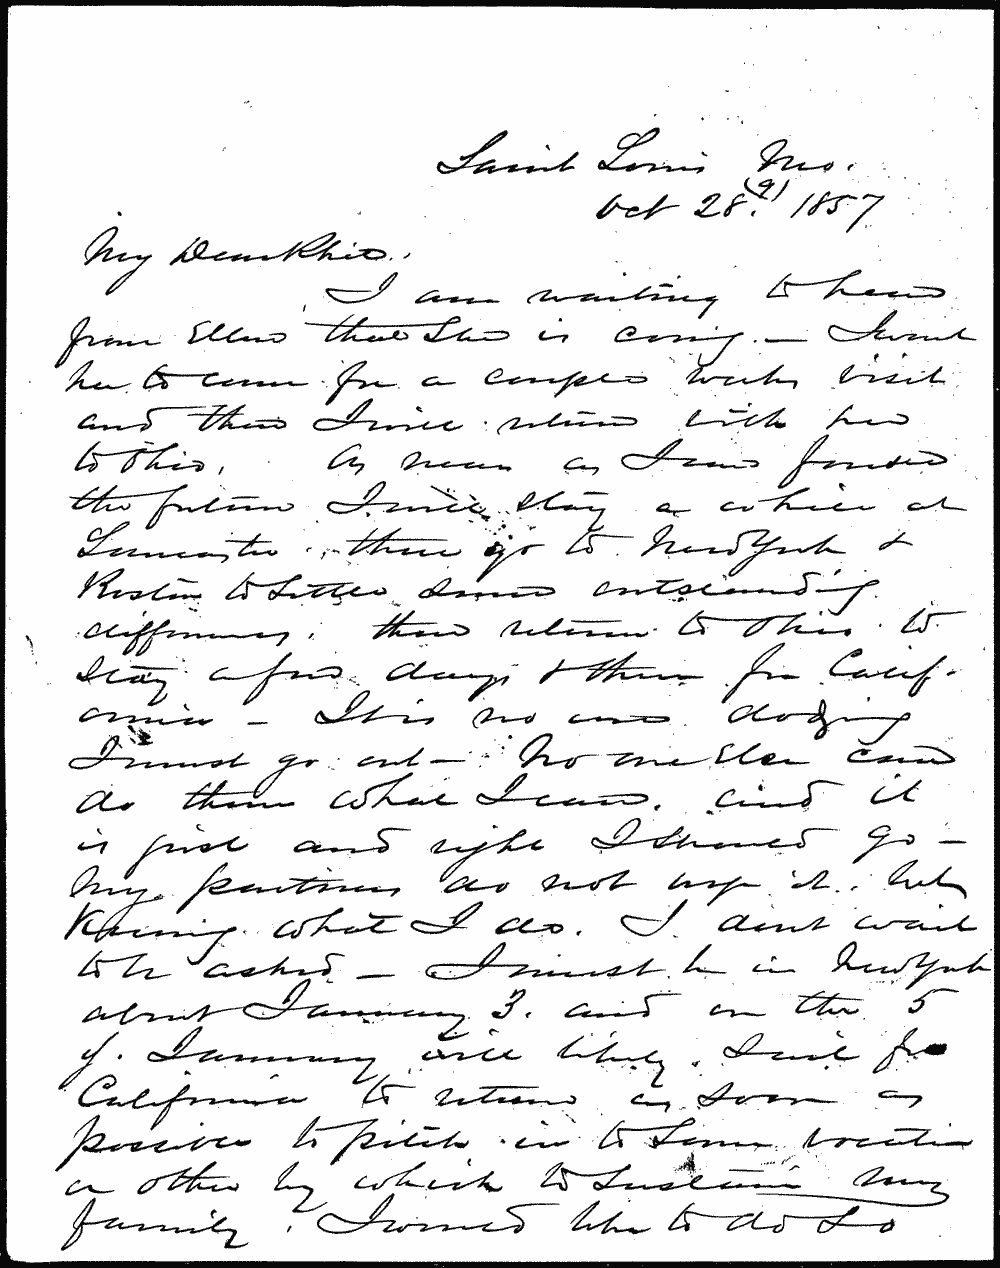 Saint Louis Mo.
Oct 28(9). 1857
My Dear Phil.
I am waiting to hear
from Ellen that She is coming. — I want
her to come for a couple weeks visit
and then I will return with her
to Ohio. As near as I can foresee
the future I will stay a while at
Lancaster, then go to New York &
Boston to Settle some outstanding
differences, then return to Ohio to
Stay a few days & then for Calif-
ornia — It is no use dodging
I must go out — No one Else can
do there what I can, and it
is just and right I should go —
My partners do not urge it, but
Knowing what I do, I dont wait
to be asked — I must be in New York
about January 3. and on the 5
of January will likely Sail for
California to return as soon as
possible to pitch in to Some vocation
or other by which to Sustain my
family. I would like to do So